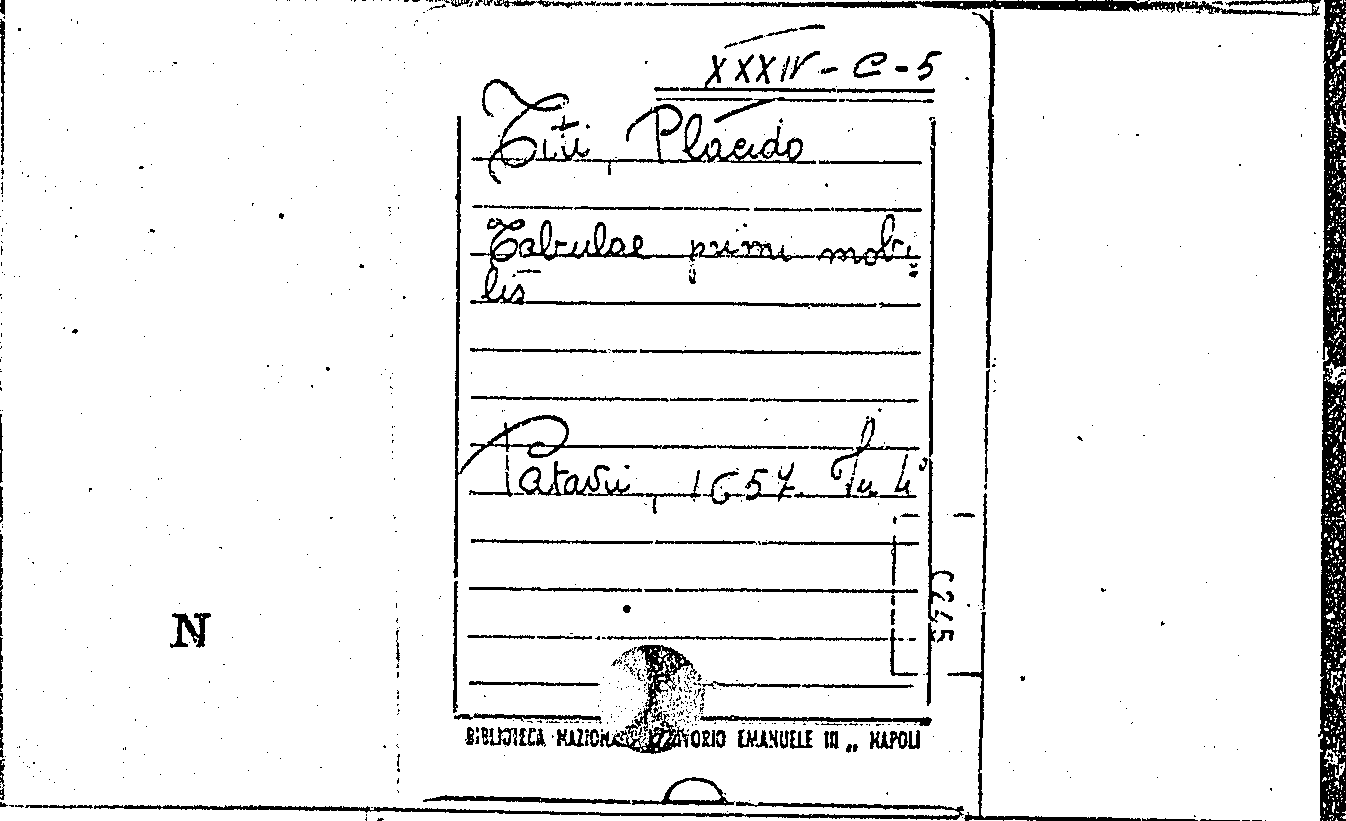 XXXIV-C-5
Titi, Placido
Tabulae primi mobi=
lis
Patavii, 1657. In 4°
N
BIBLIOTECA NAZIONALE VITTORIO EMANUELE III „ NAPOLI